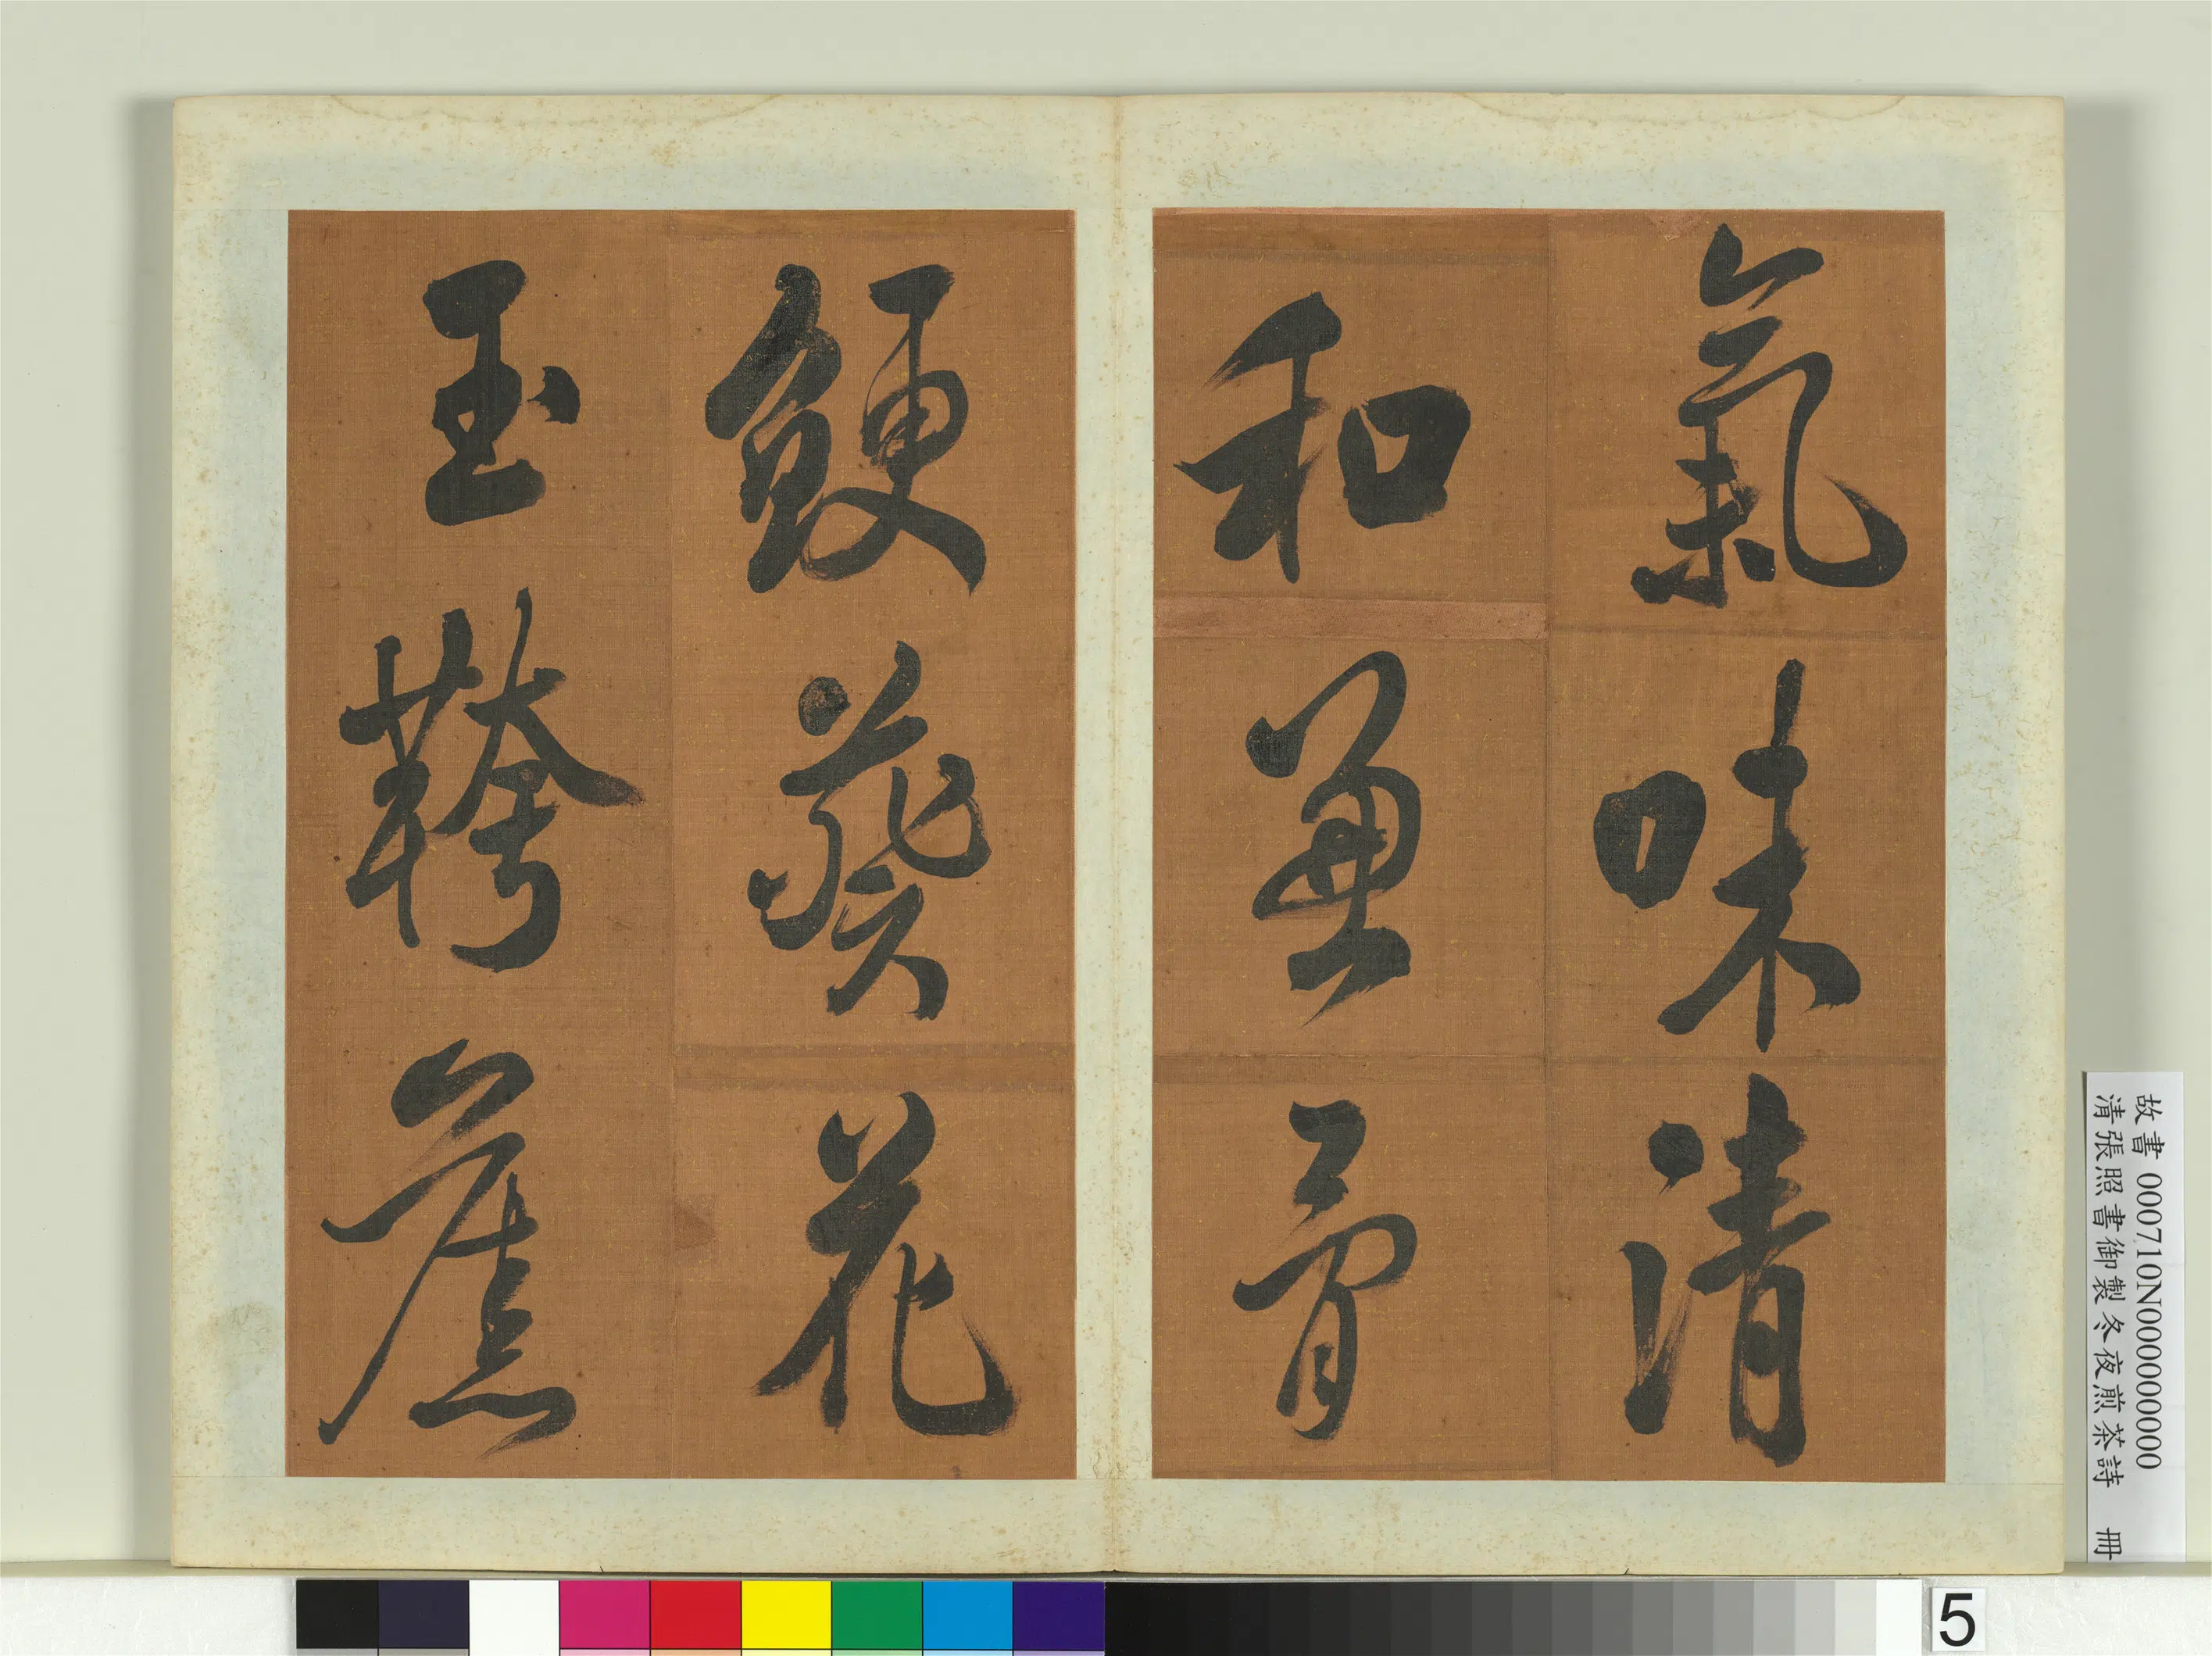 氣味清
和兼骨
鯁葵花
玉鞾舊
故書 000710N000000000
清張照書御製冬夜煎茶詩 冊
5